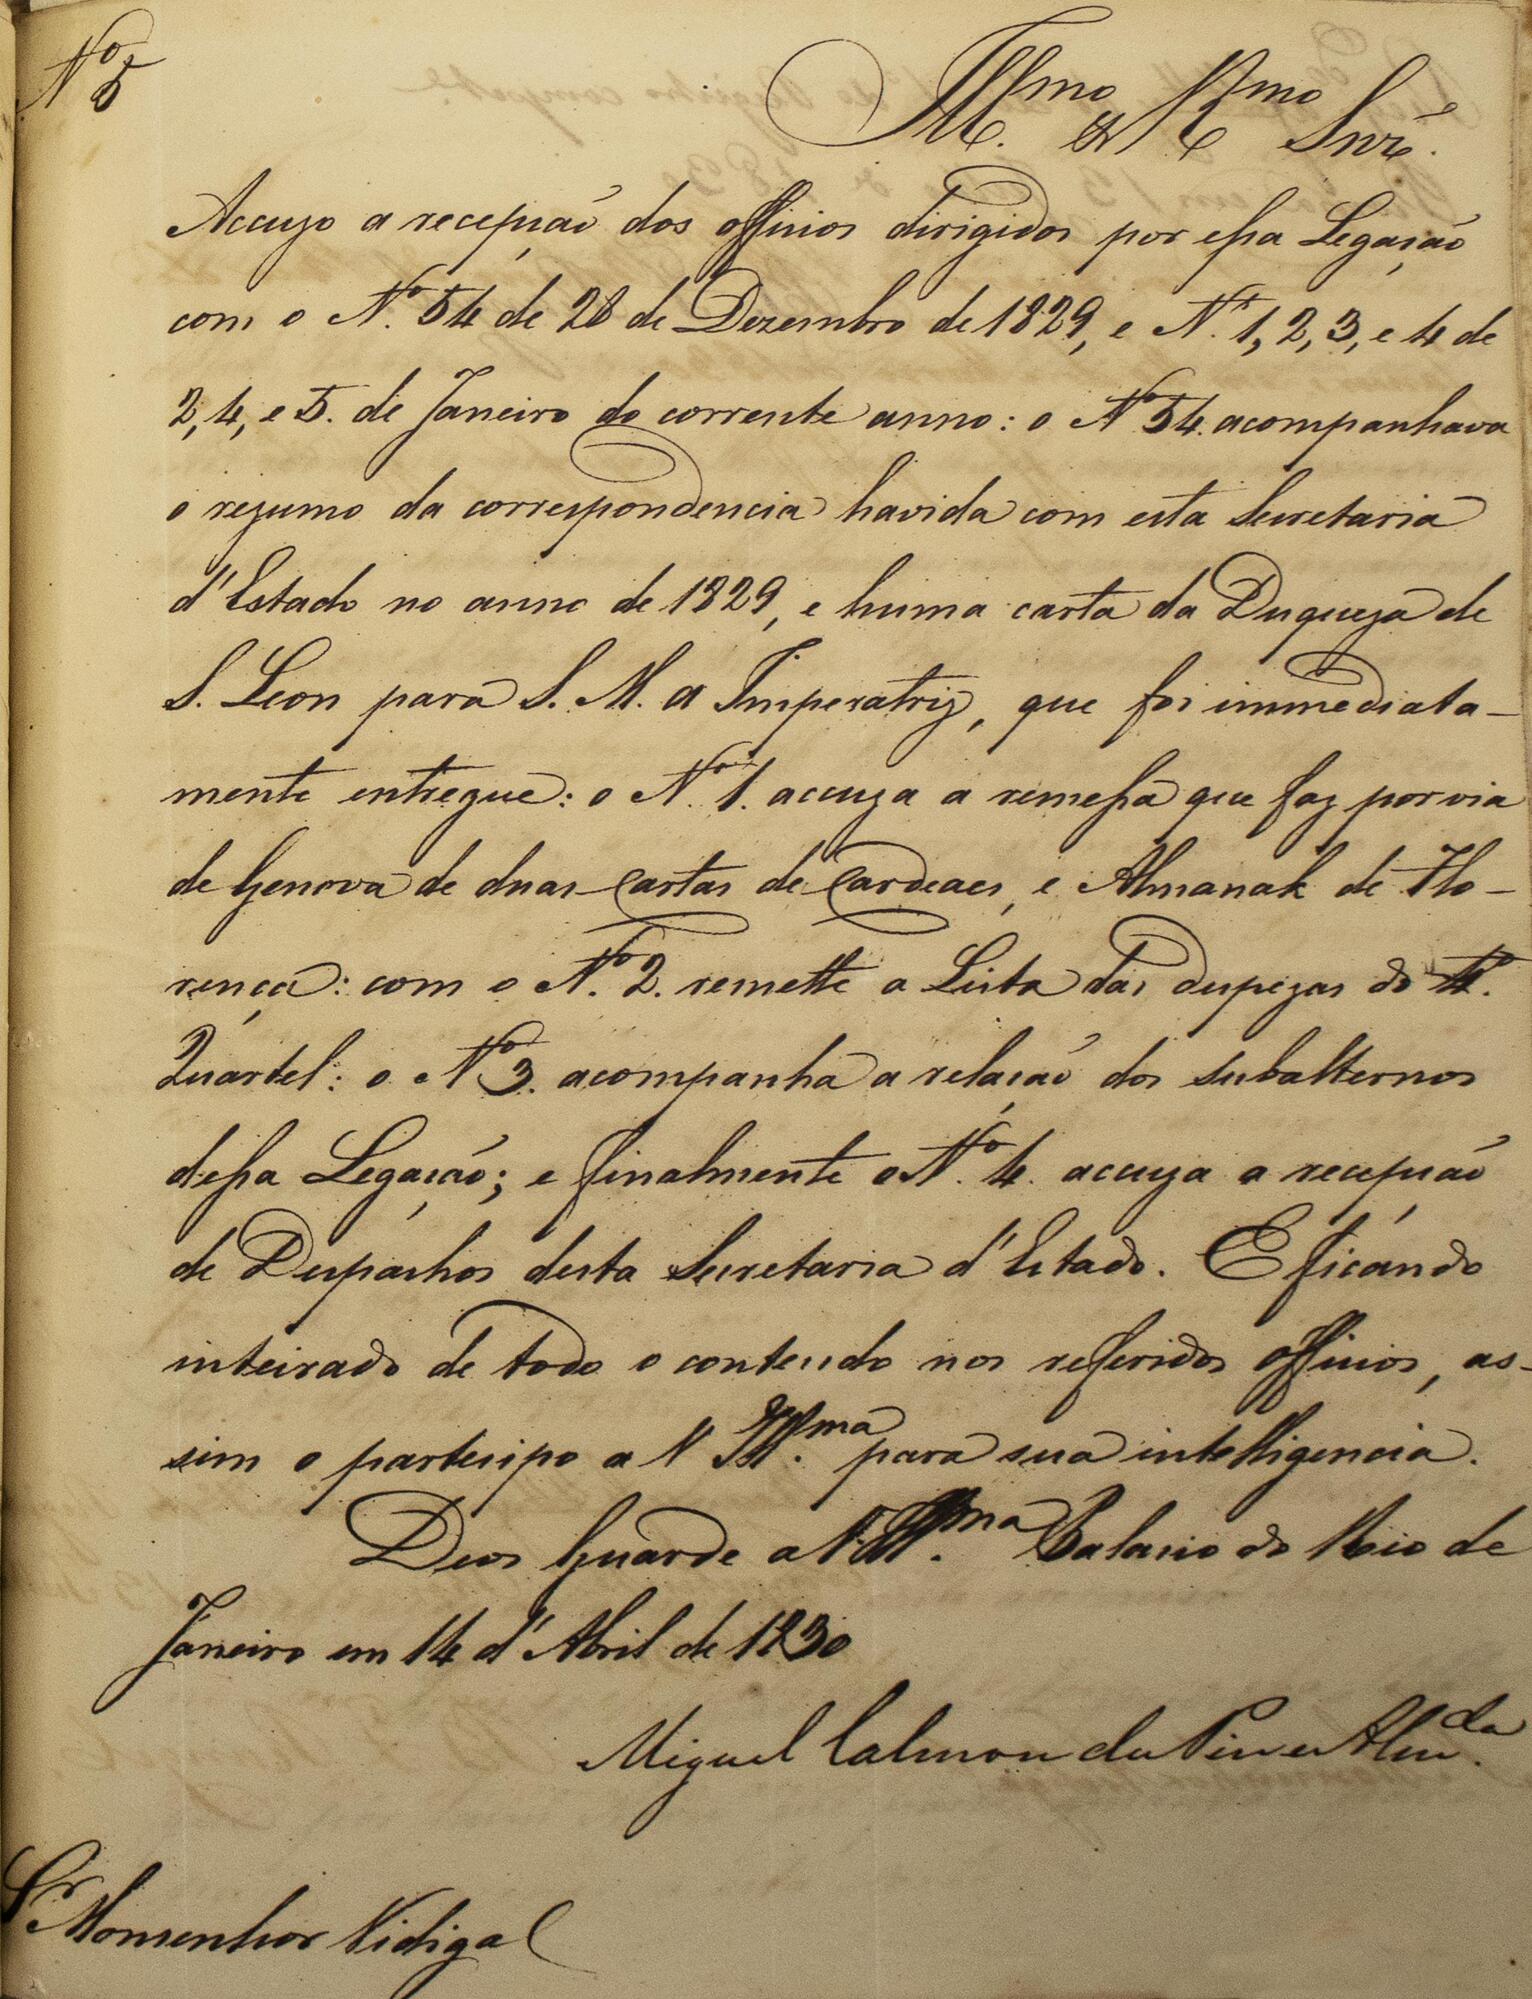 Nº 5
Illmo e Rmo Snr.
Accuzo a recepção dos officios dirigidos por essa Legação
com o Nº. 54 de 28 de Dezembro de 1829, e Nºs. 1, 2, 3, e 4 de
2, 4, e 5. de Janeiro do corrente anno: o Nº 54. acompanhava
o rezumo da correspondencia havida com esta Secretaria
d'Estado no anno de 1829, e huma carta da Duqueza de
S. Leon para S. M. a Imperatriz, que foi immediata-
mente entregue: o Nº. 1. accuza a remessa que faz por via
de Genova de duas Cartas de Cardeaes, e Almanak de Flo-
rença: com o Nº. 2. remette a Lista das despezas do 4º.
Quartel: o Nº 3. acompanha a relação dos subalternos
dessa Legação; e finalmente o Nº. 4. accuza a recepção
de Despachos desta Secretaria d'Estado. E ficando
inteirado de todo o contendo nos referidos officios, as-
sim o partecipo a V Illma. para sua intelligencia.
Deos Guarde a V. Illma. Palacio do Rio de
Janeiro em 14 d'Abril de 1830
Miguel Calmon du Pin e Almda.
Sr Monsenhor Vidigal